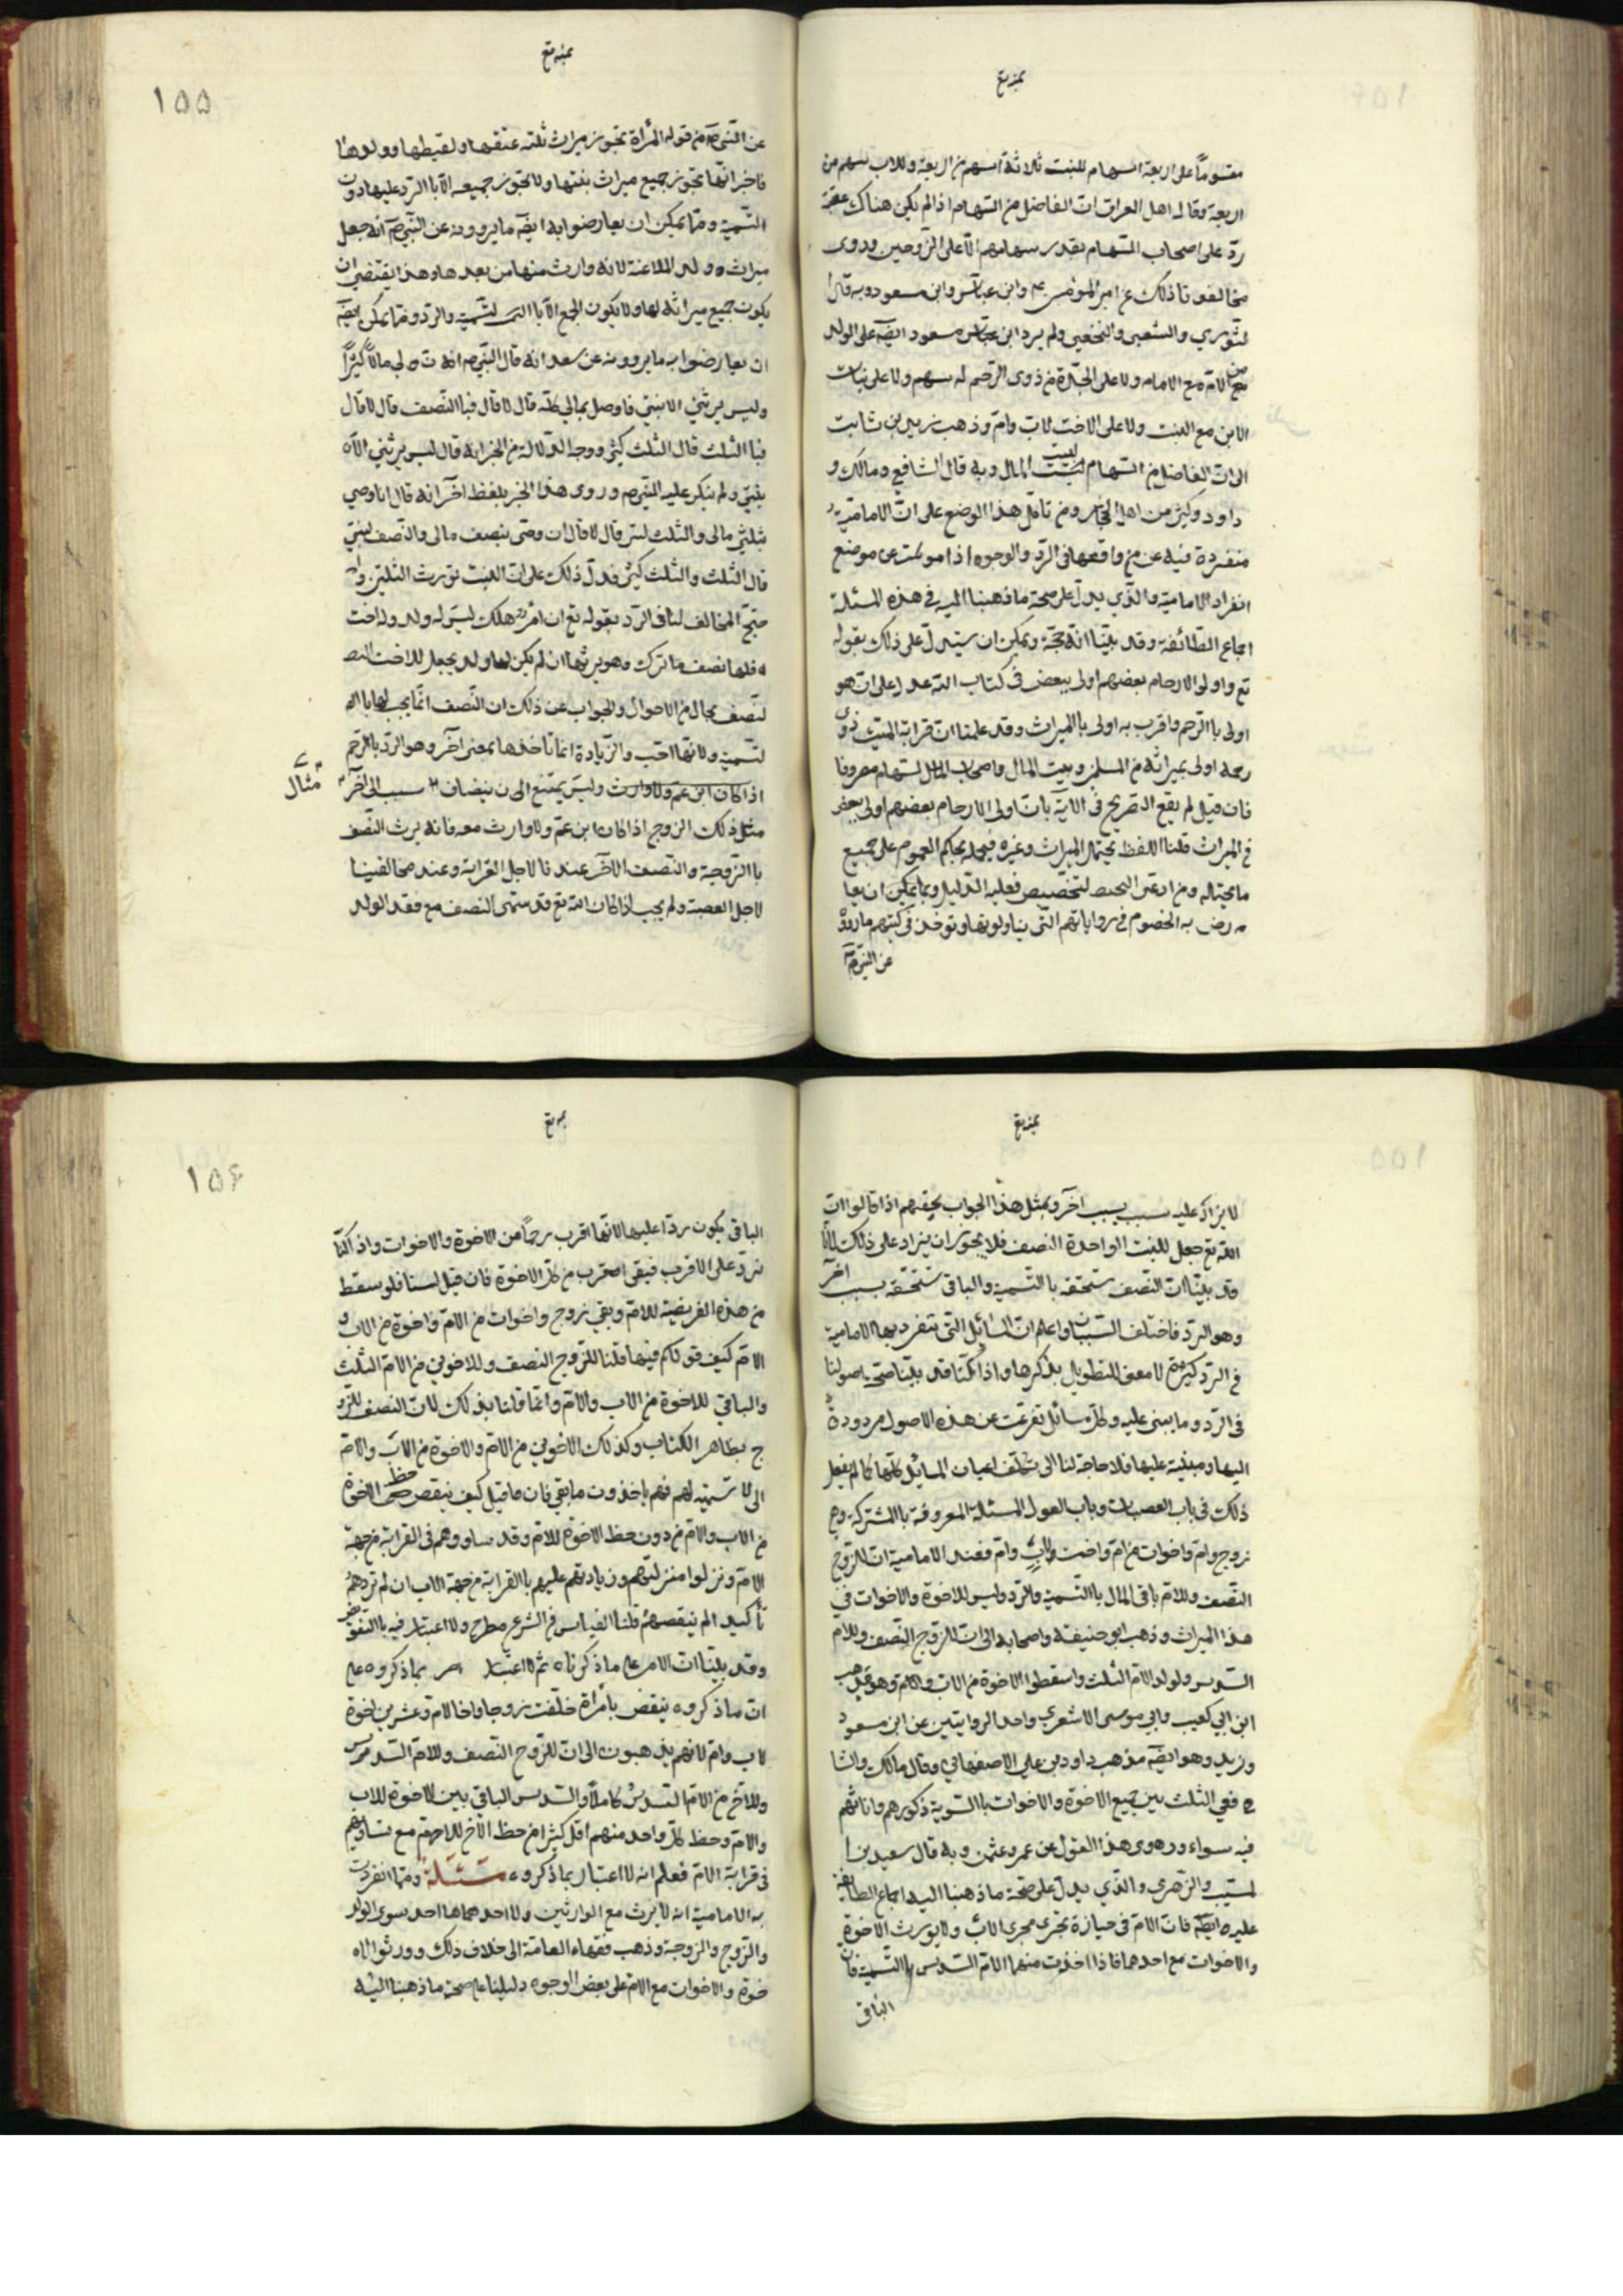 بمنه تع
مقسوماً على اربعة اسهام للبنت ثلاثة اسهم من اربعة وللاب سهم من
اربعة وقال اهل العراق ان الفاضل من السهام اذا لم يكن هناك عصبة
ردّ على اصحاب السهام بقدر سهامهم الّا على الزّوجين وروى
مخالفونا ذلك عن امير المؤمنين ع وابن عباس وابن مسعود وبه قال ا
لثوري والشعبي والنخعي ولم يرد ابن مسعود ايضه على الولد
الامّ مع الام ولا على الجدّة من ذوى الرّحم له سهم ولا على بنات
الابن مع البنت ولا على الاخت لاب وامّ وذهب زيد بن ثابت
الى انّ الفاضل من السهام لبيت المال وبه قال الشافعي ومالك و
داود وكثير من اهل الحجاز ومن تامّل هذا الوضع على انّ الاماميّة
منفردة فيه عن من وافقها في الرّد والوجوه اذا موضع
انفراد الاماميّة والّذي يدلّ على صحّة ما ذهبنا اليه في هذه المسئلة
اجماع الطّائفة وقد بيّنّا انّه حجّة ويمكن ان يستدلّ على ذلك بقوله
تع واولى الارحام بعضهم اولى ببعض فى كتاب اللّه على انّ هو
اولى باالرّحم واقرب به اولى باالميراث وقد علمنا انّ قرابة الميّت ذوى
رحمه اولى بميراثه من المسلمين وبيت المال واصحاب
فان قيل لم يقع التصريح فى الاية بانّ اولى الارحام بعضهم اولى ببعض
فى الميراث قلنا اللفظ يحتمل الميراث وغيره فيحمله بحكم العموم على جميع
ما يحتاله ومن ادعى التخصيص فعليه الدّليل وممّا يمكن ان يعا
رض به الخصوم في رواياتهم التّى يتناولونها وتوخذ فى كتبهم ما رووّ
عن النبيّ صم
بمنه تع
١٥٥
عن النّبيّ صم من قوله المرأة تحوز ميراث ثلثه عتيقها ولقيطها وولدها
فاخبر انّها تحوز جميع ميراث بنتها ولا تحوز جميعه الّا باالرّد عليها دون
التّسمية وممّا يمكن ان يعارضوا به ايضه ما يروونه عن النّبيّ صم انّه جعل
ميراث ولد الملاعنة لانه وارث منها من بعدها وهذا يقتضي ان
يكون جميع ميراثه لها ولا يكون الجميع الّا باالتسمية والرّد وممّا يمكن ايضه
ان يعارضوا به ما يروونه عن سعد انه قال للنّبيّ صم انه ان لي مالاً كثيراً
وليس يرثني الا بنتي فاوصى بمالي كلّه قال لا قال فباالنّصف قال لا قال
فباالثلث قال الثلث كثير ووجه الدّلالة من الخبر انه قال ليس يرثني الاّ
بنتي ولم ينكر عليه النّبيّ صم وروى هذا الخبر بلفظ اخر انه قال انا اوصي
بثلثي مالى والثلث لبنتي قال لا قال ان وصّى بنصف مالى والنّصف لبنتي
قال الثلث والثلث كثير فدلّ ذلك على انّ البنت تورث الثلثين وا
حتجّ المخالف لنا فى الرّد بقوله تع ان امرؤ هلك ليس له ولد وله اخت
فلها نصف ما ترك وهو يرثها ان لم يكن لها ولد يجعل للاخت النصـ
لنّصف بحال من الاحوال والجواب عن ذلك ان النّصف انّما يجب لها باا
لتسمية ولانّها اخت والزّيادة انما تأخذها بمعنى اخر وهو الرّد باالرّحم
وليس يمتنع الى ن ينضاف سبب الى اخر
مثال
مثل ذلك الزوج اذا كان ابن عمّ ولا وارث معه فانه يرث النّصف
باالزّوجيّة والنّصف الآخر عندنا لاجل القرابة وعند مخالفينا
لاجل العصبة ولم يجب اذا كان اللّه تع قد سمّى النصف مع فقد الولد
بمنه تع
لا يزاد عليه سبب اخر وبمثل هذا الجواب يجيبهم اذا قالوا انّ
اللّه تع جعل للبنت الواحدة النصف فلا يجوز ان يزاد على ذلك لانّا
وقد بيّنّا انّ النّصف تستحقه باالتّسمية والباقى تستحقه بسبب اخر
وهو الرّد فاختلف السّببان واعلم انّ المسائل التّى تتفرد بها الامامية
فى الرّد كثيرة لا معنى للتطويل بذكرها واذا كنّا قد بيّنّا صحّة اصولنا
فى الرّد وما يبنى عليه وكلّ مسائل تفرعت عن هذه الاصول مردودة
اليها ومبنية عليها فلا حاجة لنا الى تكلّف اعيان المسايل كلّها كما لم يفعل
ذلك فى باب العصبات وباب العول المسئلة المعروفة باالمشتركة وهى
زوج وامّ واخوات من امّ واخت ولاب وامّ فعند الامامية انّ للزّوج
النّصف وللامّ باقى المال باالتّسمية والرّد وليس للاخوة والاخوات في
هذا الميراث وذهب ابو حنيفة واصحابه الى انّ للزّوج النّصف وللام
السّدس ولولد الامّ الثلث واسقطوا الاخوة من الاب والامّ وهو مذهب
ابن ابي كعب وابي موسى الاشعري واحد الروايتين عن ابن مسعود
وزيد وهو ايضه مذهب داود بن علي الاصفهاني وقال مالك والشا
في الثلث بين جميع الاخوة والاخوات باالسّوية ذكورهم واناثهم
فيه سواء وروى هذا القول عن عمر وعثمن وبه قال سعيد بن ا
لمسيّب والزّهري والّذي يدلّ على صحّة ما ذهبنا اليه اجماع الطائفة
عليه ايضه فانّ الامّ فى حيازة تجرى مجرى الابّ ولا يورث الاخوة
والاخوات مع احدهما فاذا اخذت منهما الامّ السّدس باالتّسمية فان
الباقى
بمنه تع
١٥۶
الباقى يكون ردّا عليها لانّها اقرب رحمًا من الاخوة والاخوات واذا كنّا
نردّ على الاقرب فبقى من كل الاخوة فان قيل لنا فلو سقط
من هذه الفريضة للامّ وبقي زوج واخوات من الامّ واخوة من الاب و
الامّ كيف قولكم فيها قلنا للزّوج النصف وللاخوين من الامّ الثلث
والباقي للاخوة من الاب والامّ وانّما قلنا بذلك لانّ النصف للزّو
ج بظاهر الكتاب وكذلك الاخوين من الامّ والاخوة من الابّ والامّ
لا تسمية لهم فهم ياخذون ما بقي فان ما قيل كيف ينقص حظ الاخوة
من الاب والامّ من دون حظ الاخوة للامّ وقد ساووهم فى القرابة من جهة
الامّ ونزلوا منزلتهم وزيادتهم عليهم باالقرابة من جهة الاب ان لم تزدهم
تأكيدا لم ينقصهم قلنا القياس فى الشرع مطرح ولا اعتبار فيه
وقد بيّنّا انّ الامر على ما ذكرناه ثم لا اعتبار بما ذكروه على
انّ ما ذكروه ينقض بأمرأة خلّفت زوجا واخا لامّ وعشرين اخوة
لاب وامّ لانهم يذهبون الى انّ للزّوج النّصف وللامّ السّدس
وللاخ من الامّ السّدس كاملاً والسّدس الباقي بين الاخوة للاب
والامّ وحظ كلّ واحد منهم اقل كثيرا من حظ الاخ للامّ مع تساويهم
فى قرابة الامّ فعلم انه لا اعتبار بما ذكروه مسئلة وممّا انفردت
به الامامية انه لا يرث مع الوارثين ولا احدهما احد سوى الولد
والزّوج والزوجة وذهب فقهاء العامّة الى خلاف ذلك وورثوا الا
خوة والاخوات مع الامّ على بعض الوجوه دليلنا على صحة ما ذهبنا اليه